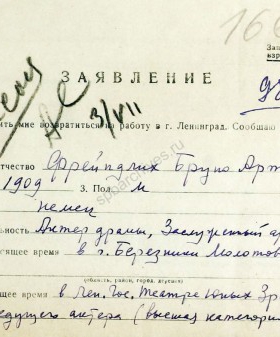 166
За
взр
ЗАЯВЛЕНИЕ
3/VII
ить мне возвратиться на работу в г. Ленинград. Сообщаю
тчество Фрейндлих Бруно Арт
1909 3. Пол м
немец
льность Актер драмы, Заслуженный ар
сящее время в г. Березники Молотов
(область, район, город, деревня)
щее время в Лен. Гос. Театре Юных Зр
едущего актера (высшая категория
spbarchives.ru